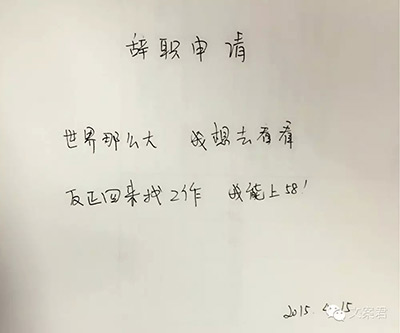 辞职申请
世界那么大 我想去看看
反正回来找工作 我能上58!
2015.4.15
文案君